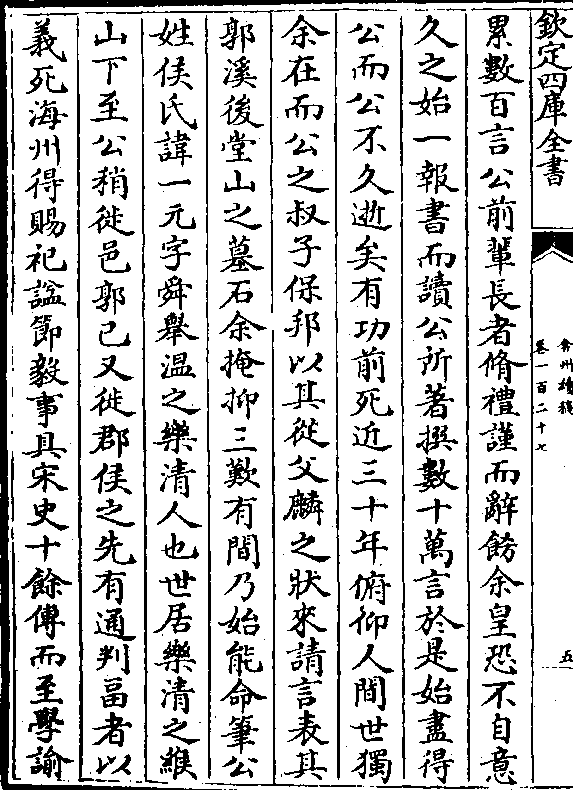 欽定四庫全書
弇州續稿
卷一百二十七
五
累數百言公前輩長者脩禮謹而辭飭余皇恐不自意
久之始一報書而讀公所著撰數十萬言於是始盡得
公而公不久逝矣有功前死近三十年俯仰人間世獨
余在而公之叔子保邦以其從父麟之狀來請言表其
郭溪後堂山之墓石余掩抑三歎有間乃始能命筆公
姓侯氏諱一元字舜舉温之樂清人也世居樂清之緱
山下至公稍徙邑郭已又徙郡侯之先有通判畐者以
義死海州得賜祀諡節毅事具宋史十餘傳而至學諭